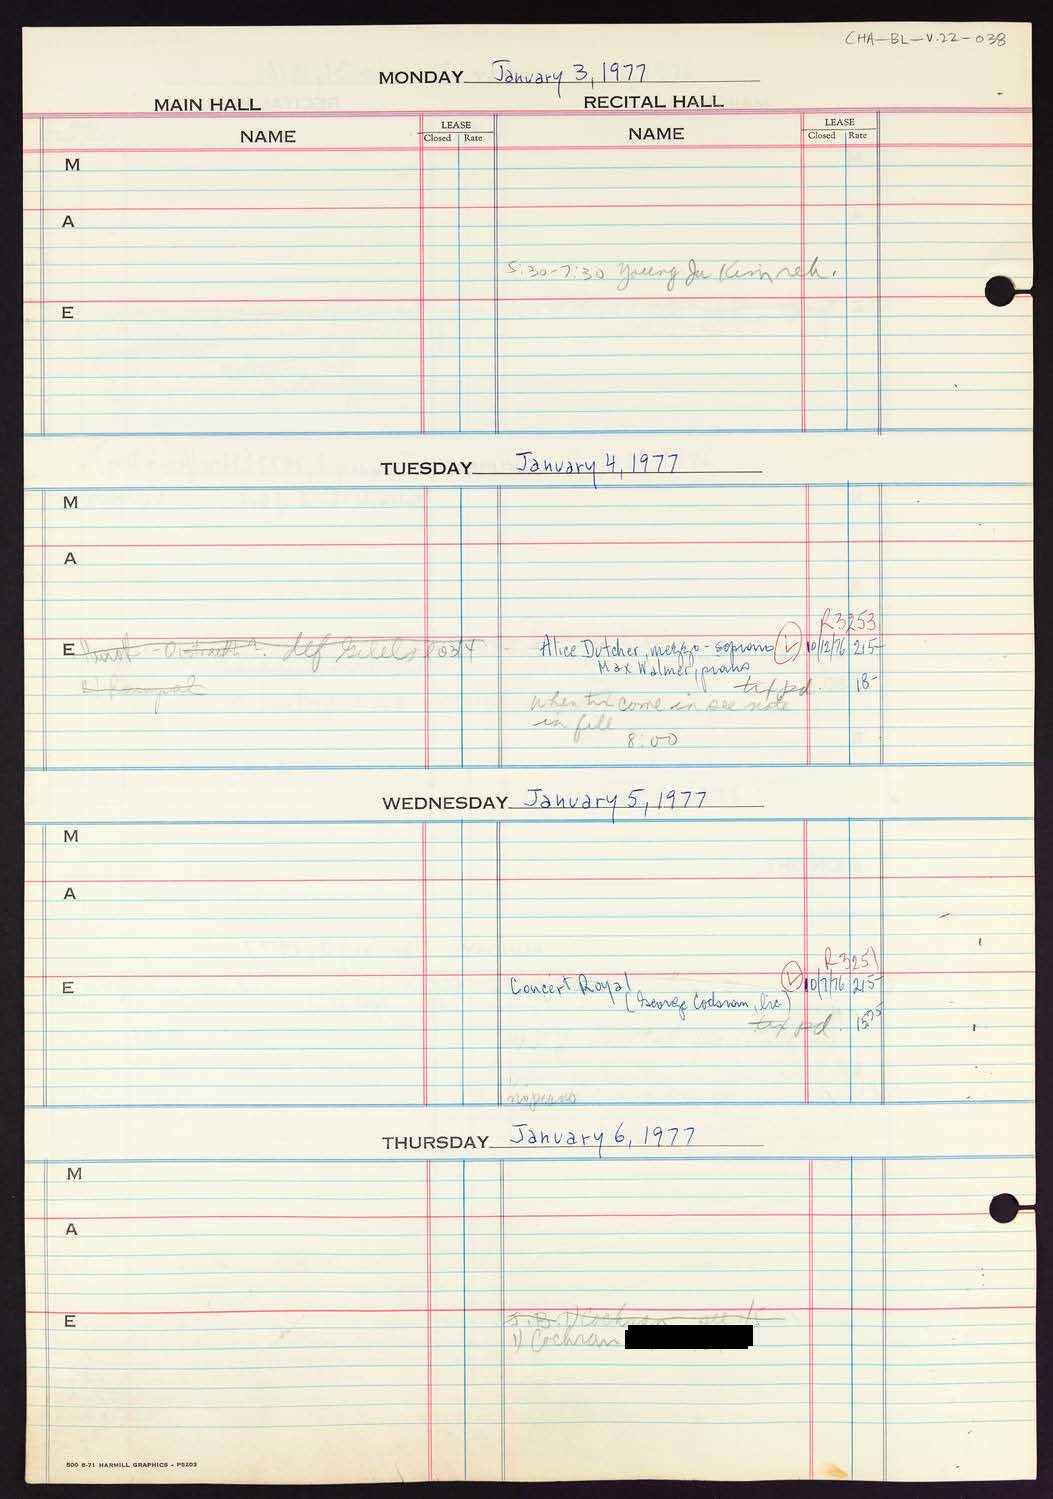 CHA-BL-V.22-038
MONDAY January 3, 1977
MAIN HALL RECITAL HALL
NAME LEASE NAME LEASE
Closed Rate Closed Rate
M
A
5:30-7:30 Young Ja Kim reh.
E
TUESDAY January 4, 1977
M
A
R3253
E Hurok - Oistrakh ? def Gilels Alice Dutcher, mezzo-soprano L 10/12/76 215-
1) Rampal Max Walmer, piano
tax pd. 18-
when they come in see note
in fill
8:00
WEDNESDAY January 5, 1977
M
A
R3251
E Concert Royal L 10/7/76 215-
(George Codsnam, Inc)
tax pd. 15.75
no piano
THURSDAY January 6, 1977
M
A
E J. B. 1) Cochran see
1) Cochran
500 8-71 HARMILL GRAPHICS - P5203